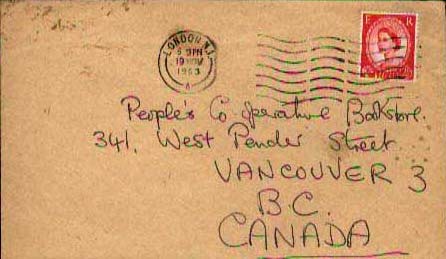 LONDON. N.1.
19 NOV
1963
A
E R
People's Co-operative Bookstore.
341, West Pender Street
VANCOUVER 3
B.C.
CANADA